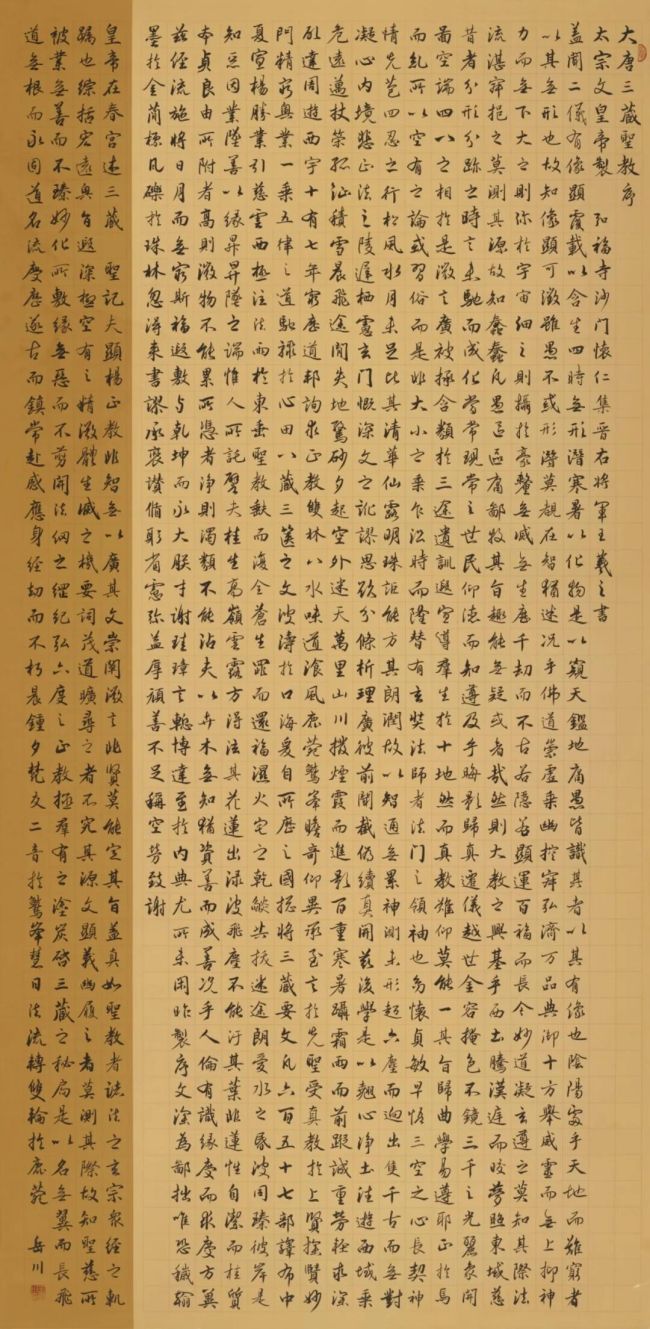 大唐三藏聖教序
太宗文皇帝製 弘福寺沙門懷仁集晉右將軍王羲之書
蓋聞二儀有像顯覆載以含生四時無形潛寒暑以化物是以窺天鑑地庸愚皆識其者以其有像也陰陽處乎天地而難窮者
以其無形也故知像顯可徵雖愚不或形潛莫覩在智猶迷況乎佛道崇虛乘幽控寂弘濟万品典御十方舉威靈而無上抑神
力而無下大之則弥於宇宙細之則攝於豪釐無滅無生歷千劫而不古若隱若顯運百福而長今妙道凝玄遵之莫知其際法
流湛寂挹之莫測其源故知蠢蠢凡愚區區庸鄙投其旨趣能無疑或者哉然則大教之興基乎西土騰漢庭而皎夢照東域慈
昔者分形分跡之時言未馳而成化當常現常之世民仰而知遵及乎晦影歸真遷儀越世金容掩色不鏡三千之光麗象開
圖空端四八之相於是微言廣被拯含類於三途遺訓遐宣導群生於十地然而真教難仰莫能一其旨歸曲學易遵耶正於焉
而糺所以空有之論或習俗而是非大小之乘乍沿時而隆替有玄奘法師者法門之領袖也幼懷貞敏早悟三空之心長契神
情先苞四忍之行松風水月未足比其清華仙露明珠詎能方其朗潤故以智通無累神測未形超六塵而迥出隻千古而無對
凝心內境悲正法之陵遲栖慮玄門慨深文之訛謬思欲分條析理廣彼前聞截偽續真開茲後學是以翹心淨土法遊西域乘
危遠邁杖策孤征積雪晨飛途閒失地驚砂夕起空外迷天萬里山川撥煙霞而進影百重寒暑躡霜雨而前蹤誠重勞輕求深
願達周遊西宇十有七年窮歷道邦詢求正教雙林八水味道飡風鹿菀鷲峯瞻奇仰異承至言於先聖受真教於上賢探賾妙
門精窮奧業一乘五律之道馳驟於心田八藏三篋之文波濤於口海爰自所歷之國揔將三藏要文凡六百五十七部譯布中
夏宣楊勝業引慈雲西極注法雨於東垂聖教缺而復全蒼生罪而還福濕火宅之乾燄共拔迷途朗愛水之昏波同臻彼岸是
知惡因業墜善以緣昇昇墜之端惟人所託譬夫桂生高嶺雲露方得泫其花蓮出淥波飛塵不能汙其葉非蓮性自潔而桂質
本貞良由所附者高則微物不能累所憑者淨則濁類不能沾夫以卉木無知猶資善而成善況乎人倫有識緣慶而求慶方冀
茲經流施將日月而無窮斯福遐敷与乾坤而永大朕才謝珪璋言慙博達至於內典尤所未閑昨製序文深為鄙拙唯恐穢翰
墨於金簡標瓦礫於珠林忽得來書謬承褒讚循躬省慮弥益厚顏善不足稱空勞致謝
皇帝在春宮述三藏 聖記夫顯楊正教非智無以廣其文崇闡微言非賢莫能定其旨蓋真如聖教者諸法之玄宗眾經之軌
躅也綜括宏遠奧旨遐深極空有之精微體生滅之機要詞茂道曠尋之者不究其源文顯義幽履之者莫測其際故知聖慈所
被業無善而不臻妙化所敷緣無惡而不剪開法網之綱紀弘六度之正教拯群有之塗炭啓三藏之秘扃是以名無翼而長飛
道無根而永固道名流慶歷遂古而鎮常赴感應身經劫而不朽晨鍾夕梵交二音於鷲峯慧日法流轉雙輪於鹿菀 岳川